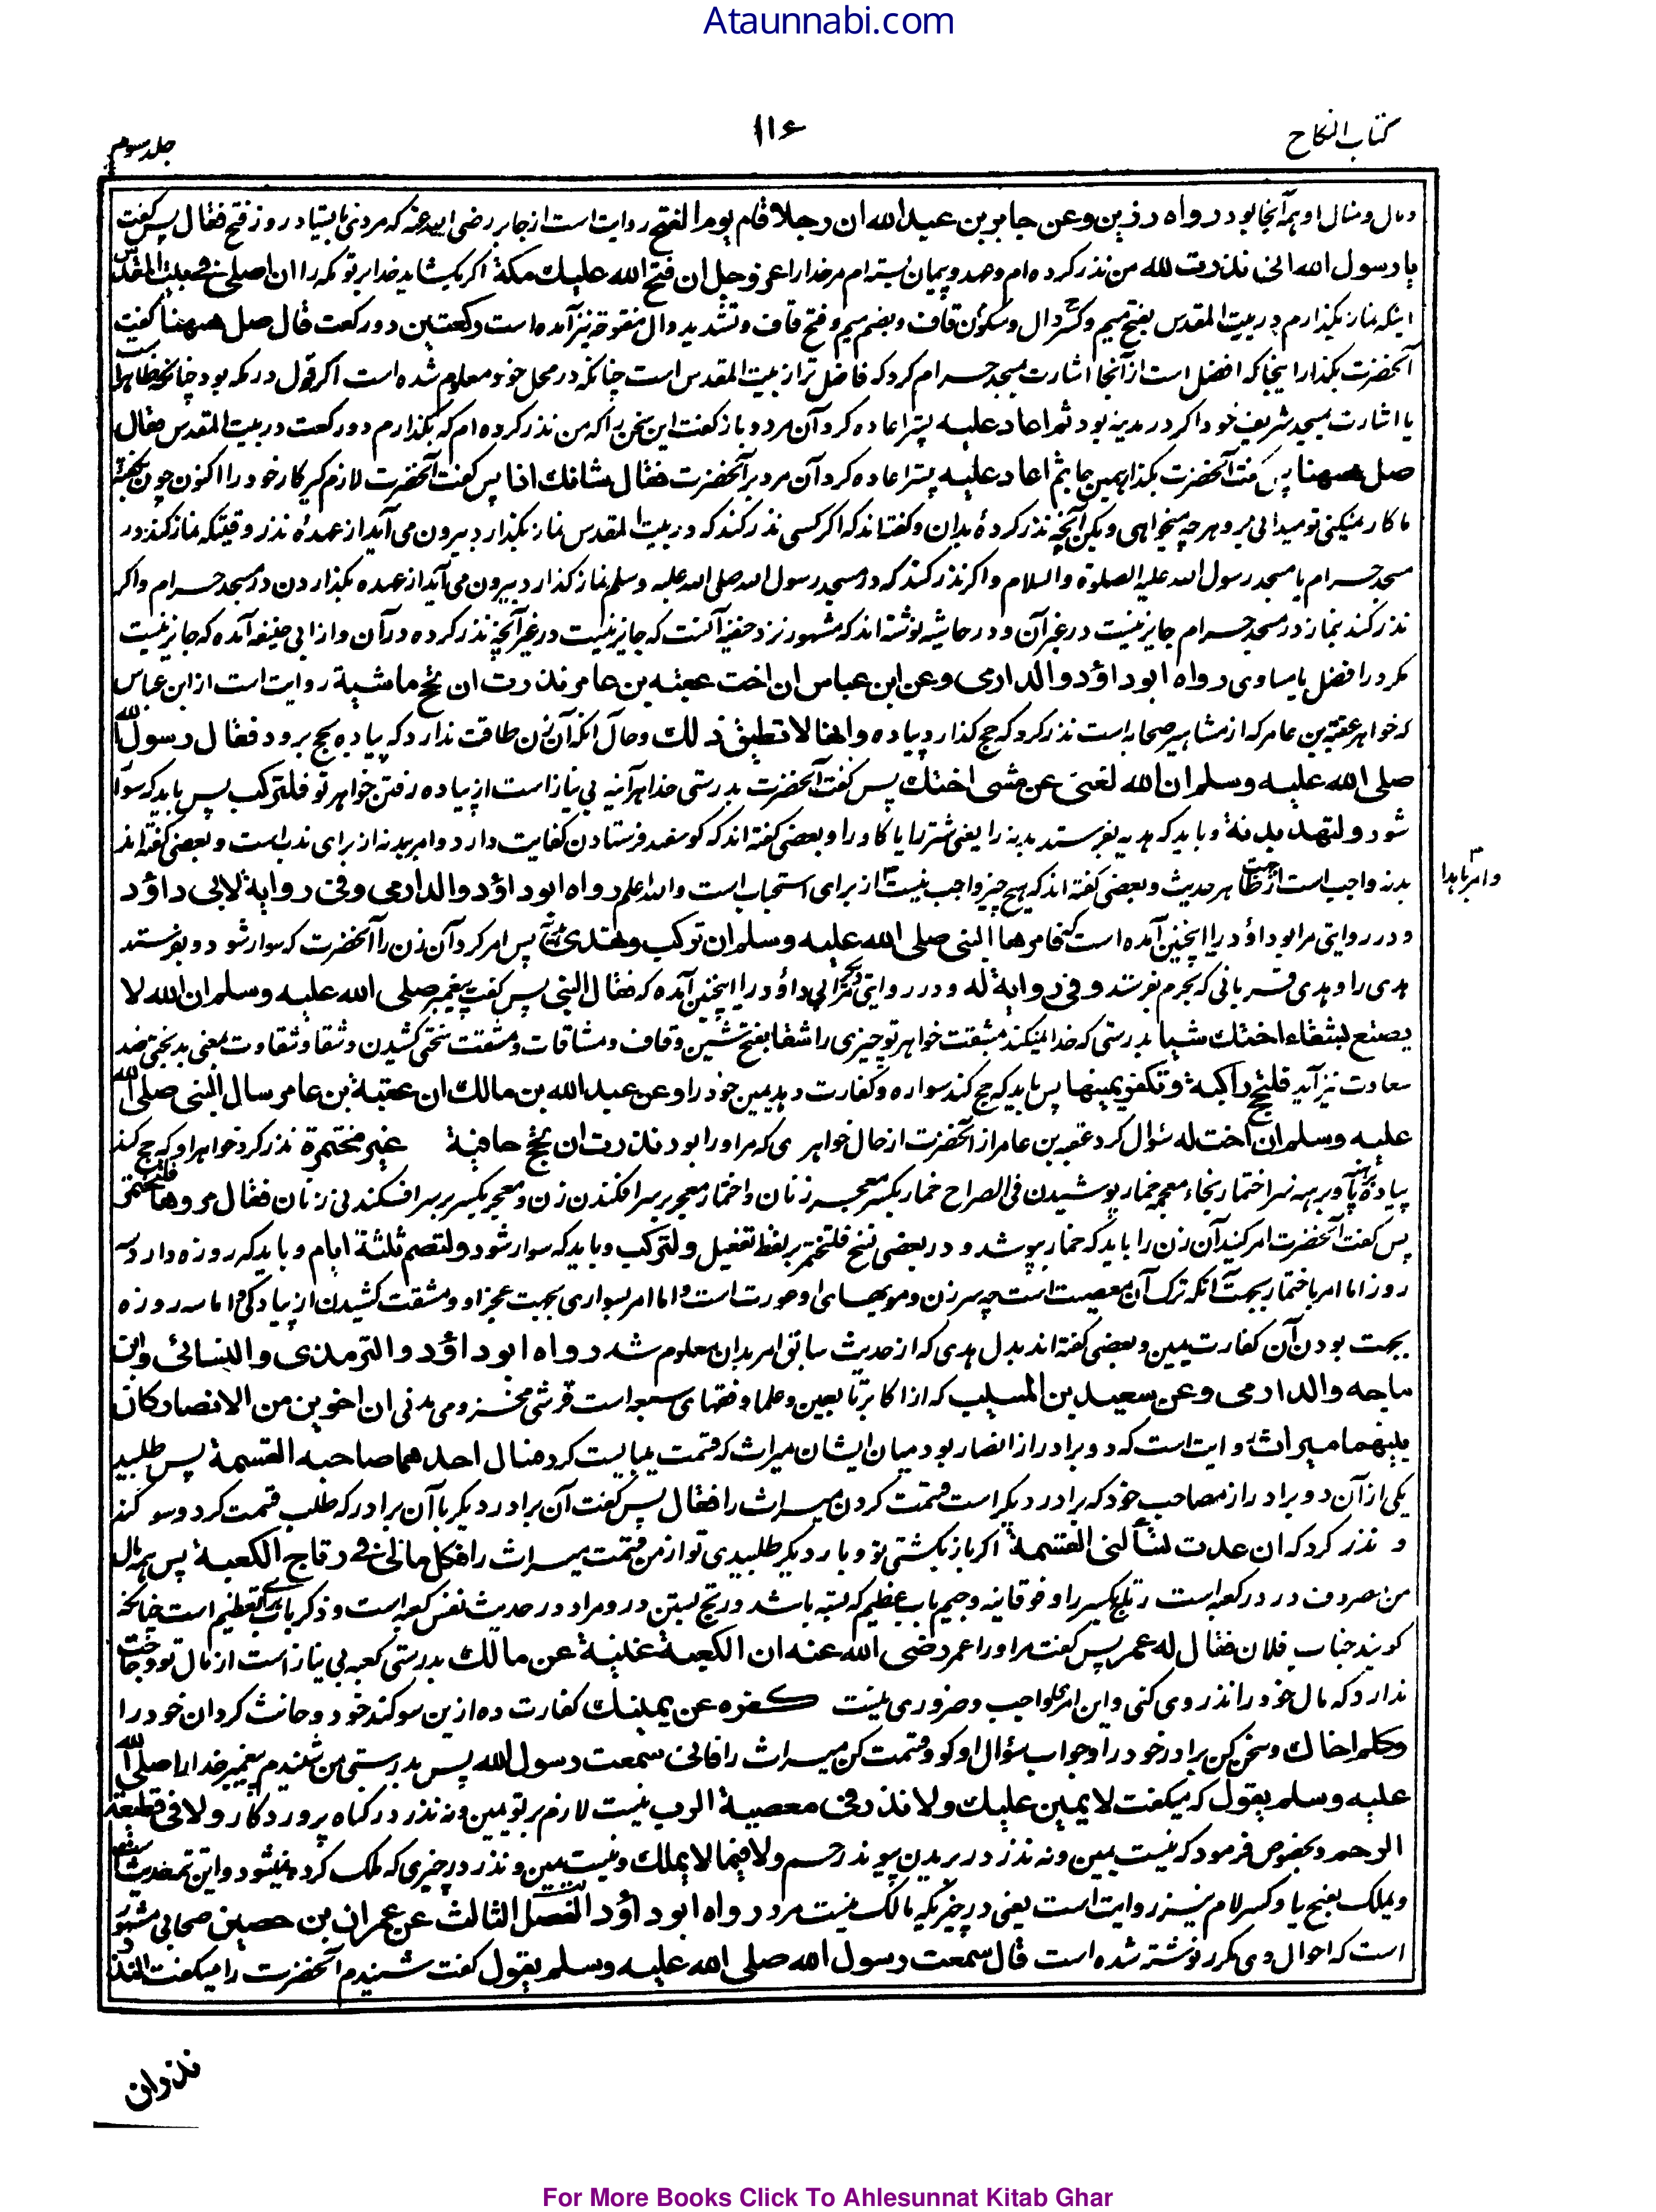 Ataunnabi.com
کتاب النکاح
١١۶
جلد سوم
و مال و منال او ہم آنجا بود رواه رزین وعن جابر بن عبد الله ان رجلا قام یوم الفتح روایت است از جابر رضی الله عنه که مردی بایستاد روز فتح فقال پس گفت
یا رسول الله انی نذرت لله من نذر کرده ام و عهد و پیمان بسته ام مر خدا را عز وجل ان فتح الله علیک مکة اگر بکشاید خدا بر تو مکه را ان اصلی فی بیت المقدس
اینکه نماز بگذارم در بیت المقدس بفتح میم و کسر دال و سکون قاف و بضم میم و فتح قاف و تشدید دال مفتوحه نیز آمده است رکعتین دو رکعت قال صل ههنا گفت
آنحضرت بگذار اینجا که افضل است از آنجا اشارت بمسجد حرام کرد که فاضل تر از بیت المقدس است چنانکه در محل خود معلوم شده است اگر قول در مکه بود چنانچه ظاهر است
یا اشارت بمسجد شریف خود اگر در مدینه بود ثم اعاد علیه پستر اعاده کرد آن مرد و باز گفت این سخن را که من نذر کرده ام که بگذارم دو رکعت در بیت المقدس فقال
صل ههنا پس گفت آنحضرت بگذار همین جا ثم اعاد علیه پستر اعاده کرد آن مرد بر آنحضرت فقال شانک اذا پس گفت آنحضرت لازم گیر کار خود را اکنون چون بگفتهٔ
ما کار نمیکنی تو میدانی برو هر چه میخواهی و بکن آنچه نذر کردهٔ بدان و گفته اند که اگر کسی نذر کند که در بیت المقدس نماز بگذارد بیرون می آید از عهدهٔ نذر وقتیکه نماز کند در
مسجد حرام یا مسجد رسول الله علیه الصلوة والسلام و اگر نذر کند که در مسجد رسول الله صلی الله علیه وسلم نماز گذارد بیرون می آید از عهده بگذاردن در مسجد حرام و اگر
نذر کند نماز در مسجد حرام جایز نیست در غیر آن و در حاشیه نوشته اند که مشهور نزد حنفیه آنست که جایز نیست در غیر آنچه نذر کرده در آن و از ابی حنیفه آمده که جایز نیست
مگر در افضل یا مساوی رواه ابو داؤد والدارمی وعن ابن عباس ان اخت عقبه بن عامر نذرت ان تحج ماشیة روایت است از ابن عباس
که خواهر عقبة بن عامر که از مشاهیر صحابه است نذر کرد که حج گذارد پیاده وانها لا تطیق ذلک و حال آنکه آن زن طاقت ندارد که پیاده بحج برود فقال رسول الله
صلی الله علیه وسلم ان الله لغنی عن مشی اختک پس گفت آنحضرت بدرستی خدا هر آئینه بی نیاز است از پیاده رفتن خواهر تو فلترکب پس باید که سوار
شود ولتهد بدنة و باید که هدیه بفرستد بدنه را یعنی شتر را یا گاو را و بعضی گفته اند که گوسفند فرستادن کفایت دارد و امر ببدنه از برای ندب است و بعضی گفته اند
بدنه واجب است از جهت ظاهر حدیث و بعضی گفته اند که هیچ چیز واجب نیست از برای استحباب است والله اعلم رواه ابو داؤد والدارمی وفی روایة لابی داؤد
و امر باهدا
و در روایتی مر ابو داؤد را اینچنین آمده است که فامرها النبی صلی الله علیه وسلم ان ترکب وتهدی هدیا پس امر کرد آن زن را آنحضرت که سوار شود و بفرستد
هدی را و هدی قربانی که بحرم بفرستند وفی روایة له و در روایتی دیگر مر ابی داؤد را اینچنین آمده که فقال النبی پس گفت پیغمبر صلی الله علیه وسلم ان الله لا
یصنع بشقاء اختک شیا بدرستی که خدا نمیکند بمشقت خواهر تو چیزی را شقا بفتح شین و قاف و مشاقات و مشقت سختی کشیدن و شقا و شقاوت بمعنی بدبختی ضد
سعادت نیز آید فلتحج راکبة وتکفر یمینها پس باید که حج کند سواره و کفارت دهد یمین خود را وعن عبد الله بن مالک ان عقبة بن عامر سال النبی صلی الله
علیه وسلم ان اخت له سؤال کرد عقبه بن عامر از آنحضرت از حال خواهری که مر او را بود نذرت ان تحج حافیة غیر مختمرة نذر کرد خواهر او که حج کند
پیاده برهنه پا و برهنه سر اختمار بخاء معجمه خمار پوشیدن فی الصراح خمار بکسر معجر زنان و اختمار معجر بر سر افکندن زن و معجر بکسر بر سر افکندنی زنان فقال مروها فلتختمر
پس گفت آنحضرت امر کنید آن زن را باید که خمار بپوشد و در بعضی نسخ فلتختمر بلفظ تفعیل ولترکب و باید که سوار شود ولتصم ثلثة ایام و باید که روزه دارد سه
روز اما امر باختمار بجهت آنکه ترک آن معصیت است چه سر زن و مویهای او عورت است و اما امر بسواری بجهت عجز او و مشقت کشیدن از پیادگی و اما سه روزه
بجهت بودن آن کفارت یمین و بعضی گفته اند بدل هدی که از حدیث سابق امر بدان معلوم شد رواه ابو داؤد والترمذی والنسائی وابن
ماجه والدارمی وعن سعید بن المسیب که از اکابر تابعین و علما و فقهای سبعه است قرشی مخزومی مدنی ان اخوین من الانصار کان
بینهما میراث روایت است که دو برادر از انصار بود میان ایشان میراث که قسمت میبایست کرد فسال احدهما صاحبه القسمة پس طلبید
یکی از آن دو برادر از مصاحب خود که برادر دیگر است قسمت کردن میراث را فقال پس گفت آن برادر دیگر با آن برادر که طلب قسمت کرد و سوگند
و نذر کرد که ان عدت تسألنی القسمة اگر باز بگشتی تو و بار دیگر طلبیدی تو از من قسمت میراث را فکل مالی فی رتاج الکعبة پس همه مال
من مصروف در در کعبه است رتاج بکسر را و فوقانیه و جیم باب عظیم که بسته باشد و رتج بستن در و مراد در حدیث نفس کعبه است و ذکر باب برای تعظیم است چنانکه
گویند جناب فلان فقال له عمر پس گفت مر او را عمر رضی الله عنه ان الکعبة غنیة عن مالک بدرستی کعبه بی نیاز است از مال تو و حاجت
ندارد که مال خود را نذر وی کنی و این امر واجب و ضروری نیست کفر عن یمینک کفارت ده از این سوگند خود و حانث گردان خود را
وکلم اخاک و سخن کن برادر خود را و جواب سؤال او گو و قسمت کن میراث را فانی سمعت رسول الله پس بدرستی من شنیدم پیغمبر خدا را صلی الله
علیه وسلم یقول که میگفت لا یمین علیک ولا نذر فی معصیة الرب نیست لازم بر تو یمین و نه نذر در گناه پروردگار ولا فی قطیعة
الرحم و بخصوص فرمود که نیست یمین و نه نذر در بریدن پیوند رحم ولا فیما لا یملک و نیست یمین و نذر در چیزی که ملک کرده نمیشود
ویملک بفتح یا و کسر لام نیز روایت است یعنی در چیزیکه مالک نیست مرد رواه ابو داؤد الفصل الثالث عن عمران بن حصین صحابی مشهور
است که احوال وی مکرر نوشته شده است قال سمعت رسول الله صلی الله علیه وسلم یقول گفت شنیدم آنحضرت را میگفت النذر
نذران
For More Books Click To Ahlesunnat Kitab Ghar